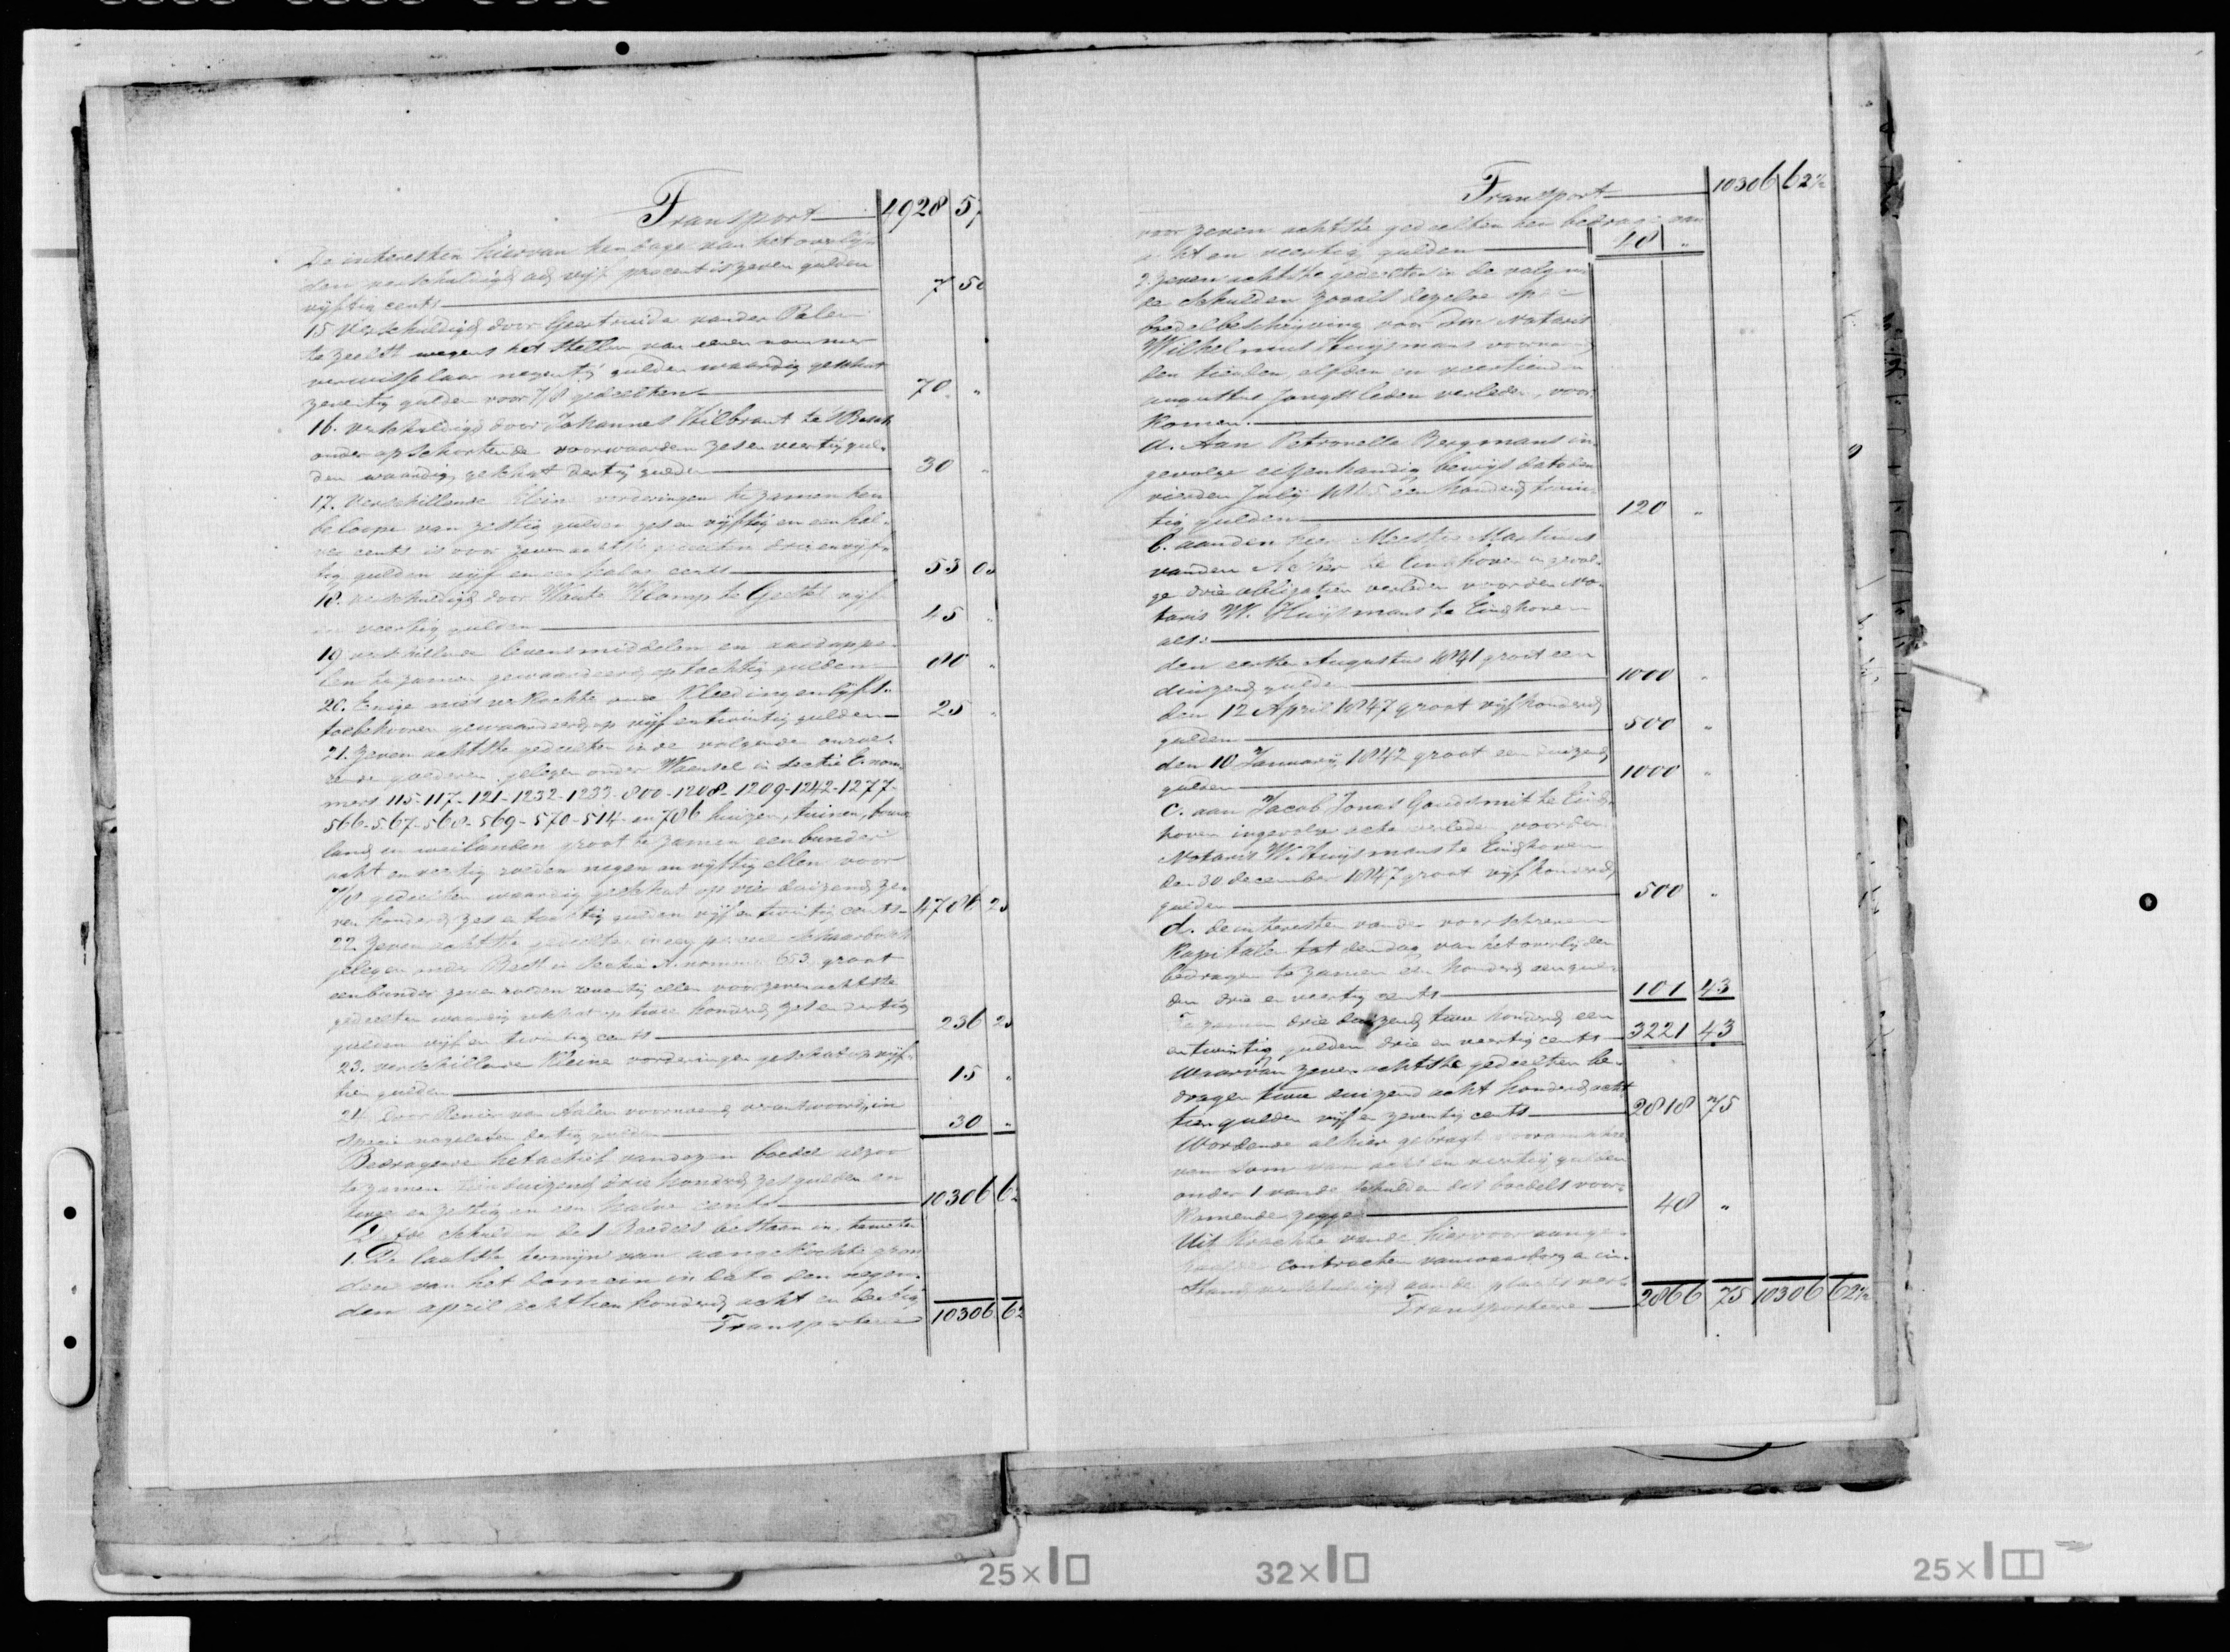 Transport 4928 57
De interesten hiervan ten dage van het overlij
den verschuldigd ad vijf procent is zeven gulden
vijftig cents 7 50
15 Verschuldigd door Geertruida vander Palen
te Zeelst wegens het stellen van eenen nommer
verwisselaar negentig gulden waardig geschat
zeventig gulden voor 7/8 gedeelten 70 "
16. Verschuldigd door Johannes Hilbrant te
onder opschortende voorwaarden zes en veertig gul-
den waardig geschat dertig gulden 30 "
17. Verschillende kleine vorderingen te zamen ten
beloope van zestig gulden zes en vijftig en een hal-
ve cents is voor zeven achtste gedeelten drie en vijf-
tig gulden vijf en een halve cents 53 05
18. verschuldigd door Klomp te Gestel vijf
en veertig gulden 45 "
19 verschillende levensmiddelen en aardappe-
len te zamen gewaardeerd op tachtig gulden 80 "
20. Enige niet verkochte oude kleeding en lijfs-
toebehooren gewaardeerd op vijf en twintig gulden 25 "
21. Zeven achtste gedeelten in de volgende onroe-
rende goederen gelegen onder Woensel in sectie C. nom-
mers 115-117-121-1232-1233-800-1208-1209-1242-1277-
566-567-568-569-570-514- en 786 huizen, tuinen, bouw
land en weilanden groot te zamen een bunder
acht en veertig roeden negen en vijftig ellen voor
7/8 gedeelten waardig geschat op vier duizend ze-
ven honderd zes en tachtig gulden vijf en twintig cents 4786 25
22. Zeven achtste gedeelten in een perceel schaarbosch
gelegen onder Best in sectie A. nommer 653 groot
een bunder zeven roeden zeventig ellen voor zeven achtste
gedeelten waardig geschat op twee honderd zes en dertig
gulden vijf en twintig cents 236 25
23. verschillende kleine vorderingen geschat op vijf-
tien gulden 15 "
24. door Renier van Aalen voornoemd verantwoord, in
specie nagelaten dertig gulden 30 "
Bedragende het actief van dezen boedel alzoo
te zamen tien duizend drie honderd zes gulden en
twee en zestig en een halve cents 10306 62
De schulden des Boedels bestaan in, te weten
1. De laatste termijn van aangekochte gron
den van het domein in dato den negen-
den april achttien honderd acht en dertig
Transportere 10306 62
Transport 10306 62½
voor zeven achtste gedeelten ten bedrage van
acht en veertig gulden 48 "
2. zeven achtste gedeelten in de volgen
de schulden zooals dezelve op de
boedelbeschrijving voor den Notaris
Wilhelmus Huijsmans voornoemd
den tienden, elfden en veertienden
augustus jongstleden verleden, voor
komen.
a. Aan Petronella Bergmans in
gevolge eigenhandig bewijs dato den
vierden Julij 1845 een honderd twin-
tig gulden 120 "
b. aan den heer Meester Martinus
vanden Acker te Eindhoven in gevol-
ge drie obligatien verleden voor den No-
taris W. Huijsmans te Eindhoven
als:
den eersten Augustus 1841 groot een
duizend gulden 1000 "
den 12 April 1847 groot vijf honderd
gulden 500 "
den 10 Januarij 1842 groot een duizend
gulden 1000 "
c. aan Jacob Jonas Goudsmit te Eind-
hoven ingevolge acte verleden voor den
Notaris W. Huijsmans te Eindhoven
den 30 december 1847 groot vijf honderd
gulden 500 "
d. de interesten vande voorschreven
kapitalen tot den dag van het overlijden
bedragen te zamen een honderd een gul-
den drie en veertig cents 101 43
Te zamen drie duizend twee honderd een
en twintig gulden drie en veertig cents 3221 43
Waarvan zeven achtste gedeelten be-
dragen twee duizend acht honderd acht
tien gulden vijf en zeventig cents 2818 75
Wordende alhier gebragt
som van acht en veertig gulden
onder 1 vande schulden des boedels voor-
komende zegge 48 "
Uit krachte vande hiervoor aange-
haalde contracten van waarborg en in-
stand verschuldigd aan de plaats ver-
Transportere 2866 75 10306 62½
25× 32× 25×